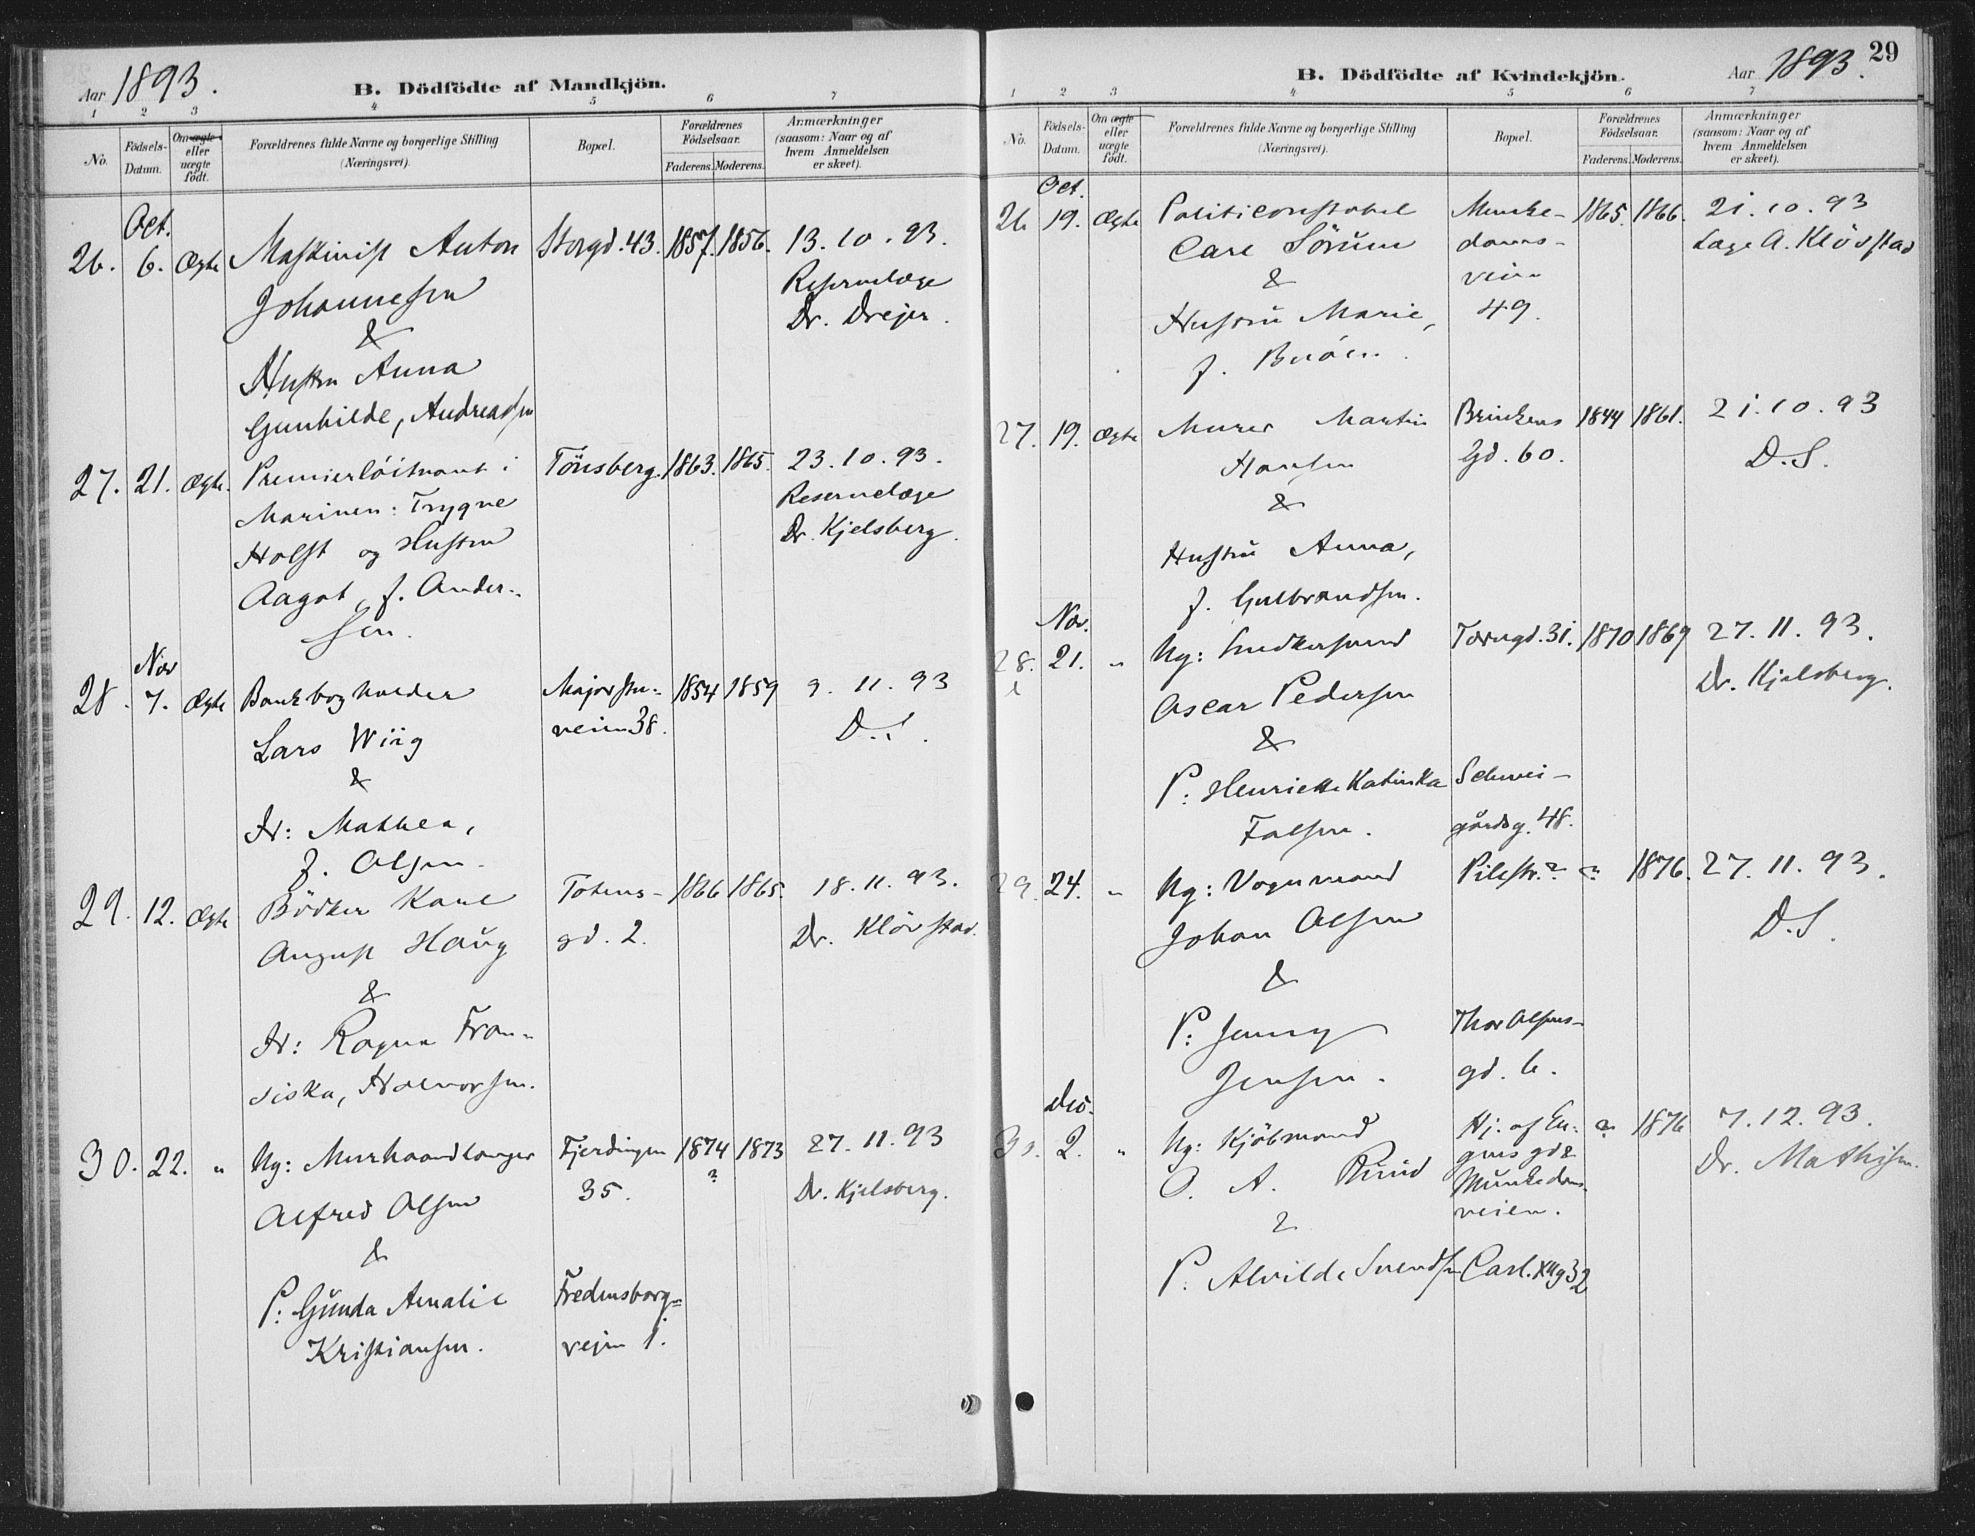 Aar 1893.
B. Dödfödte af Mandkjön.
1 2 3 4 5 6 7
No.
Födsels-Datum.
Om ægte eller uægte födt.
Forældrenes fulde Navne og borgerlige Stilling
(Næringsvei).
Bopæl.
Forældrenes Födselsaar.
Faderens. Moderens.
Anmærkninger
(saasom: Naar og af
hvem Anmeldelsen
er skeet).
Oct.
26. 6. Ægte Maskinist Anton Storgd. 43. 1857. 1856. 13.10.93.
Johannesen Reservelæge
& Dr. Drejer.
Hustru Anna
Gunhilde, Andreassen
27. 21. Ægte. Premierlöitnant i Tönsberg. 1863. 1865. 23.10.93.
Marinen: Trygve Reservelæge
Holst og Hustru Dr. Kjelsberg.
Aagot, f. Ander-
sen.
Nov
28. 7. Ægte Bankbogholder Majorstu- 1854 1859 9.11.93
Lars Wiig veien 38. D.S.
&
H: Mathea,
f. Olsen.
29. 12. Ægte Bödker Karl Totens- 1866 1865. 18.11.93.
August Haug gd. 2. Dr. Klövstad.
&
H: Ragna Fran-
siska, Halvorsen.
30. 22. " Ug: Murhaandlanger Fjerdingen 1874 1873 27.11.93
Alfred Olsen 35. ? Dr. Kjelsberg.
&
P: Gunda Amalie Fredensborg=
Kristiansen. vejen 1.
29
B. Dödfödte af Kvindekjön.
Aar 1893.
1 2 3 4 5 6 7
No.
Födsels-Datum.
Om ægte eller uægte födt.
Forældrenes fulde Navne og borgerlige Stilling
(Næringsvei).
Bopæl.
Forældrenes Födselsaar.
Faderens. Moderens.
Anmærkninger
(saasom: Naar og af
hvem Anmeldelsen
er skeet).
Oct.
26 19. Ægte Politiconstabel Munke- 1865. 1866. 21.10.93
Carl Sörum dams- Læge A. Klövstad
& veien
Hustru Marie, 49.
f.
27. 19. Ægte Murer Martin Brinkens 1844 1861. 21.10.93
Hansen Gd. 60. D.S.
&
Hustru Anna,
f. Gulbrandsen.
Nov.
28. 21. " Ug: Snedkersvend Tærugd. 31. 1870 1869 27.11.93.
Oscar Pedersen Dr. Kjelsberg.
&
P: Henriette Katinka Schwei-
Falsen. gårdsg. 48.
29. 24. " Ug: Vognmand Pilestr. ? ? 1876. 27.11.93.
Johan Olsen D.S.
&
P: Jenny Thor Olsens-
Jensen. gd. 6.
Des.
30. 2. " Ug: Kjöbmand Hj. af Eu- ? 1876 7.12.93.
O. A. Ruud gens gd & Dr. Mathisen.
& Munkedams-
veien.
P. Alvilde Svendsen Carl XII g 32